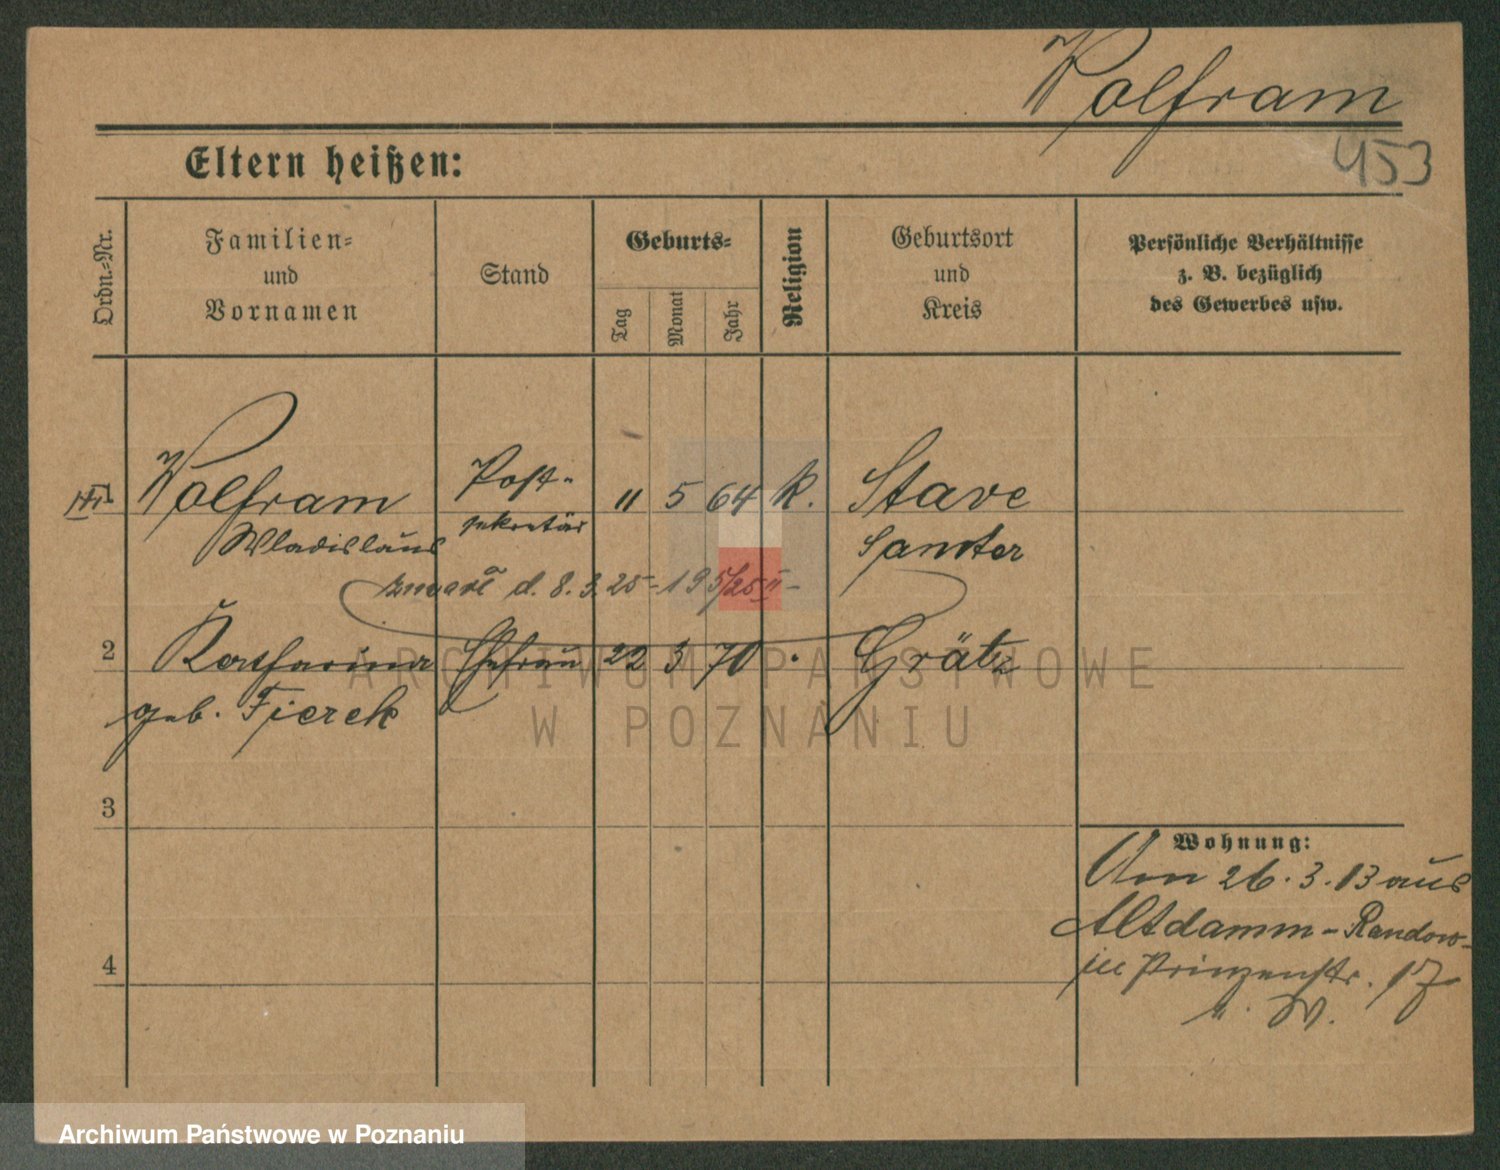 Wolfram
453
Eltern heißen:
Ordn.=Nr.
Familien=
und
Vornamen
Stand
Geburts=
Tag
Monat
Jahr
Religion
Geburtsort
und
Kreis
Persönliche Verhältnisse
z. B. bezüglich
des Gewerbes usw.
Wolfram Post- 11 5 64 k. Stave
Wladislaus sekretär Samter
zmarł d. 8.3.25 - 195/25 II -
2 Katharina Ehefrau 22 3 70 Grätz
geb. Fierek
3
Wohnung:
Am 26.3.13 aus
Altdamm - Randow-
Prinzenstr. 17
4
ARCHIWUM PAŃSTWOWE
W POZNANIU
Archiwum Państwowe w Poznaniu